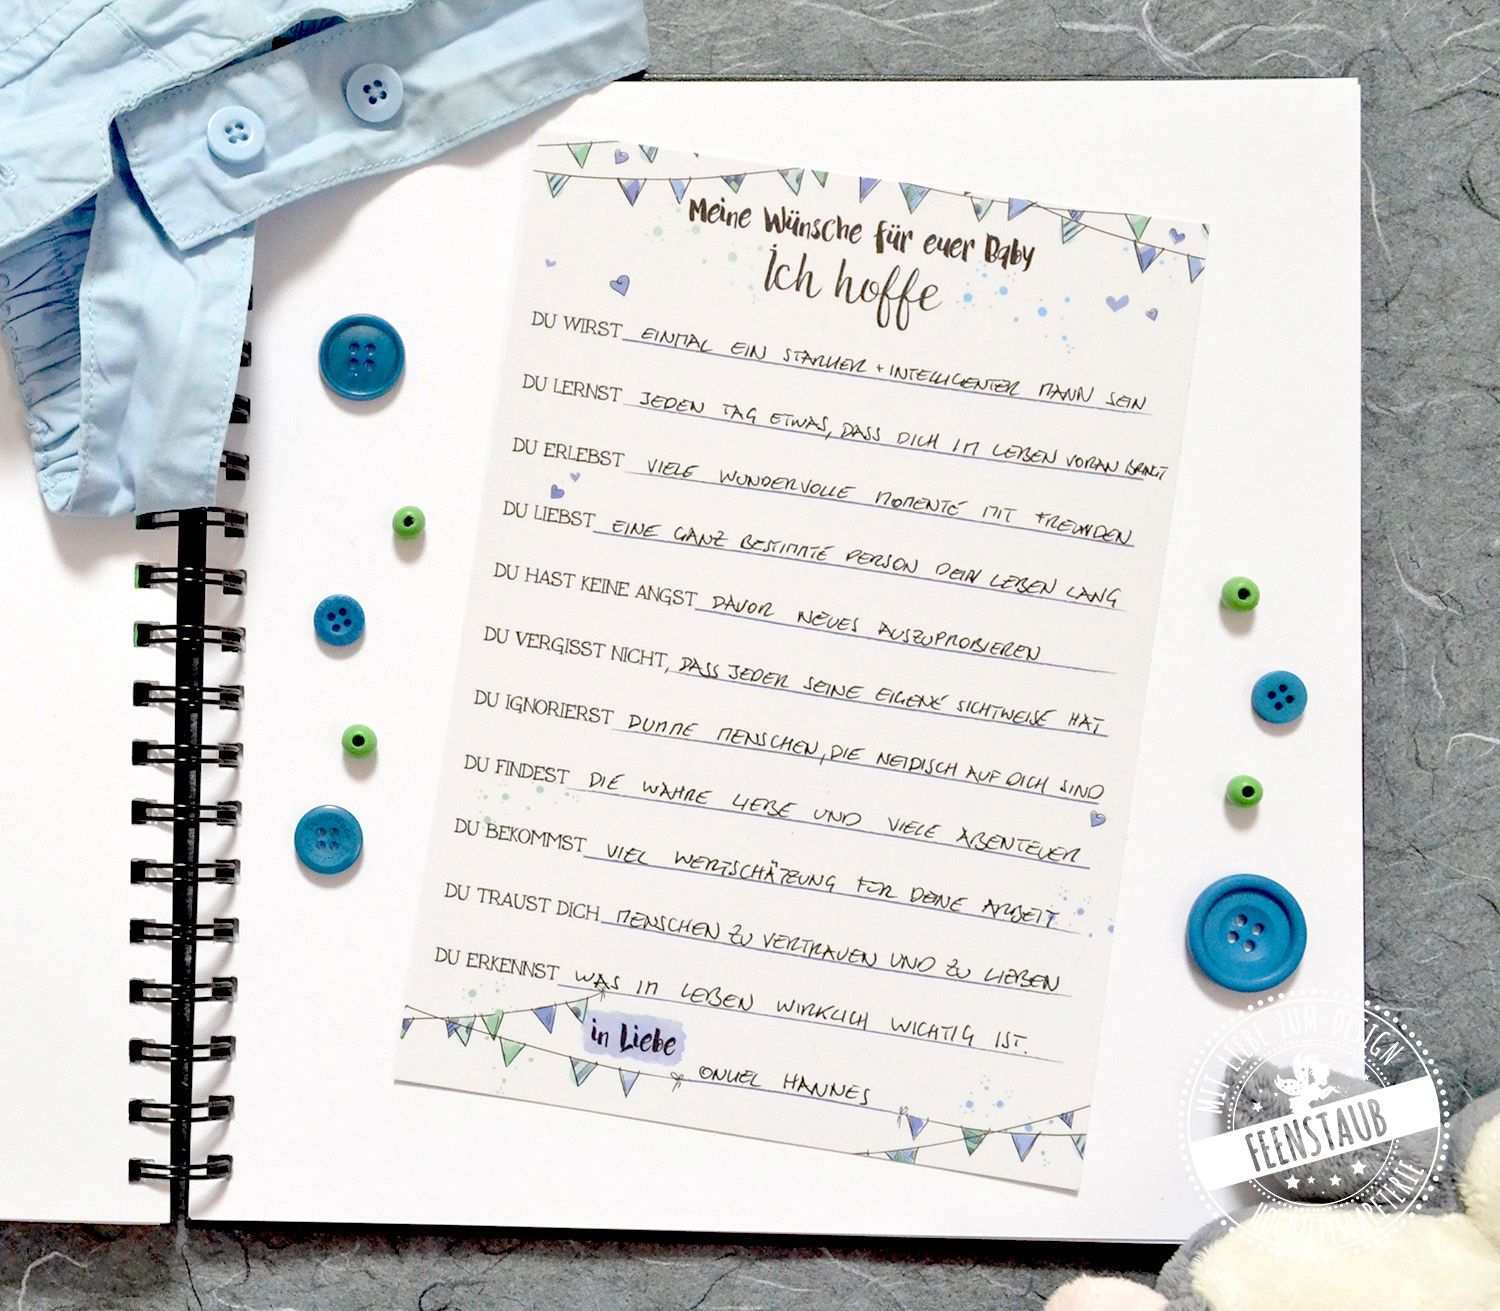 Meine Wünsche für euer Baby
Ich hoffe
DU WIRST EINMAL EIN STARKER + INTELLIGENTER MANN SEIN
DU LERNST JEDEN TAG ETWAS, DASS DICH IM LEBEN VORAN BRINGT
DU ERLEBST VIELE WUNDERVOLLE MOMENTE MIT FREUNDEN
DU LIEBST EINE GANZ BESTIMMTE PERSON DEIN LEBEN LANG
DU HAST KEINE ANGST DAVOR NEUES AUSZUPROBIEREN
DU VERGISST NICHT, DASS JEDER SEINE EIGENE SICHTWEISE HAT
DU IGNORIERST DUMME MENSCHEN, DIE NEIDISCH AUF DICH SIND
DU FINDEST DIE WAHRE LIEBE UND VIELE ABENTEUER
DU BEKOMMST VIEL WERTSCHÄTZUNG FÜR DEINE ARBEIT
DU TRAUST DICH MENSCHEN ZU VERTRAUEN UND ZU LIEBEN
DU ERKENNST WAS IM LEBEN WIRKLICH WICHTIG IST.
in Liebe ONKEL HANNES
MIT LIEBE ZUM DESIGN
FEENSTAUB